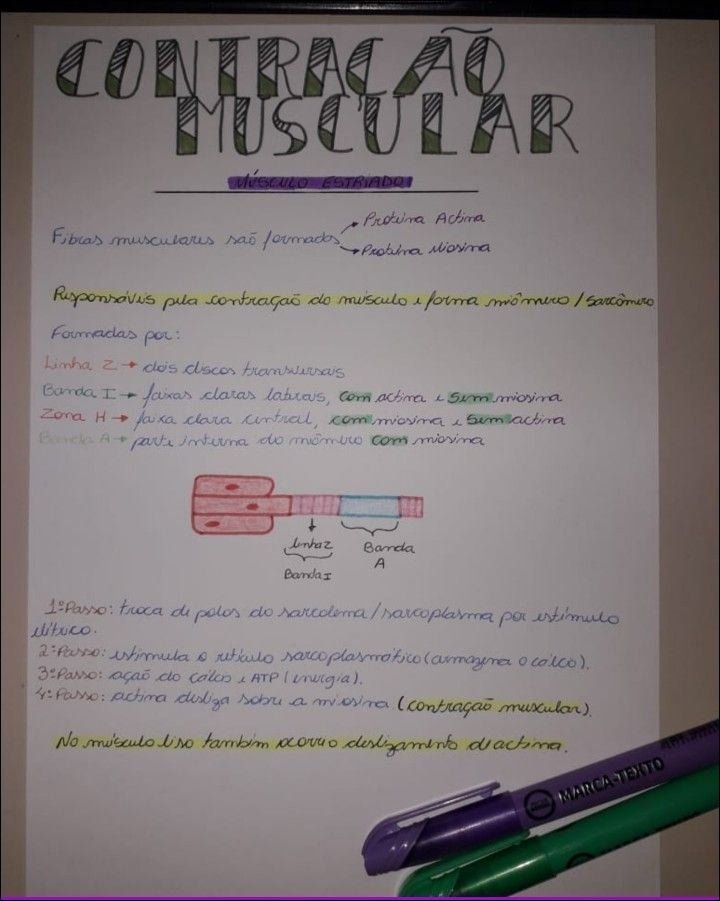 CONTRAÇÃO
MUSCULAR
MÚSCULO ESTRIADO
Fibras musculares são formadas
Proteína Actina
Proteína Miosina
Responsáveis pela contração do músculo e forma miômero/sarcômero
Formadas por:
Linha Z → dois discos transversais
Banda I → faixas claras laterais, com actina e sem miosina
Zona H → faixa clara central, com miosina e sem actina
Banda A → parte interna do miômero com miosina
Linha Z
Banda
A
Banda I
1º Passo: troca de polos do sarcolema/sarcoplasma por estímulo
elétrico.
2º Passo: estimula o retículo sarcoplasmático (armazena o cálcio).
3º Passo: ação do cálcio e ATP (energia).
4º Passo: actina desliza sobre a miosina (contração muscular).
No músculo liso também ocorre o deslizamento d'actina.
MARCA-TEXTO